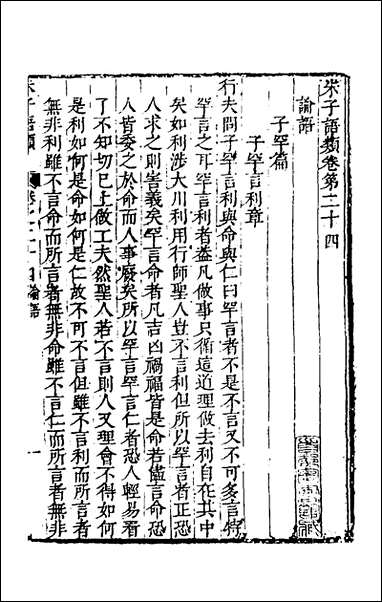 朱子語類卷第二十四
論語
子罕篇
子罕言利章
行夫問子罕言利與命與仁曰罕言者不是不言又不可多言特
罕言之耳罕言利者蓋凡做事只循這道理做去利自在其中
矣如利涉大川利用行師聖人豈不言利但所以罕言者正恐
人求之則害義矣罕言命者凡吉凶禍福皆是命若儘言命恐
人皆委之於命而人事廢矣所以罕言罕言仁者恐人輕易看
了不知切已上做工夫然聖人若不言則人又理會不得如何
是利如何是命如何是仁故不可不言但雖不言利而所言者
無非利雖不言命而所言者無非命雖不言仁而所言者無非
朱子語類 論語 一